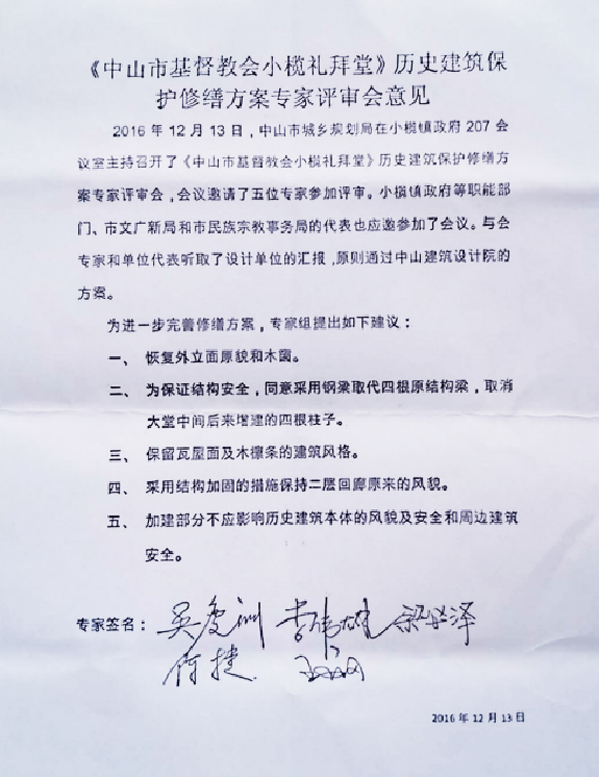 《中山市基督教会小榄礼拜堂》历史建筑保
护修缮方案专家评审会意见
2016 年 12 月 13 日，中山市城乡规划局在小榄镇政府 207 会
议室主持召开了《中山市基督教会小榄礼拜堂》历史建筑保护修缮方
案专家评审会，会议邀请了五位专家参加评审。小榄镇政府等职能部
门、市文广新局和市民族宗教事务局的代表也应邀参加了会议。与会
专家和单位代表听取了设计单位的汇报，原则通过中山建筑设计院的
方案。
为进一步完善修缮方案，专家组提出如下建议：
一、 恢复外立面原貌和木窗。
二、 为保证结构安全，同意采用钢梁取代四根原结构梁，取消
大堂中间后来增建的四根柱子。
三、 保留瓦屋面及木檩条的建筑风格。
四、 采用结构加固的措施保持二层回廊原来的风貌。
五、 加建部分不应影响历史建筑本体的风貌及安全和周边建筑
安全。
专家签名： 李伟雄
何捷
2016 年 12 月 13 日